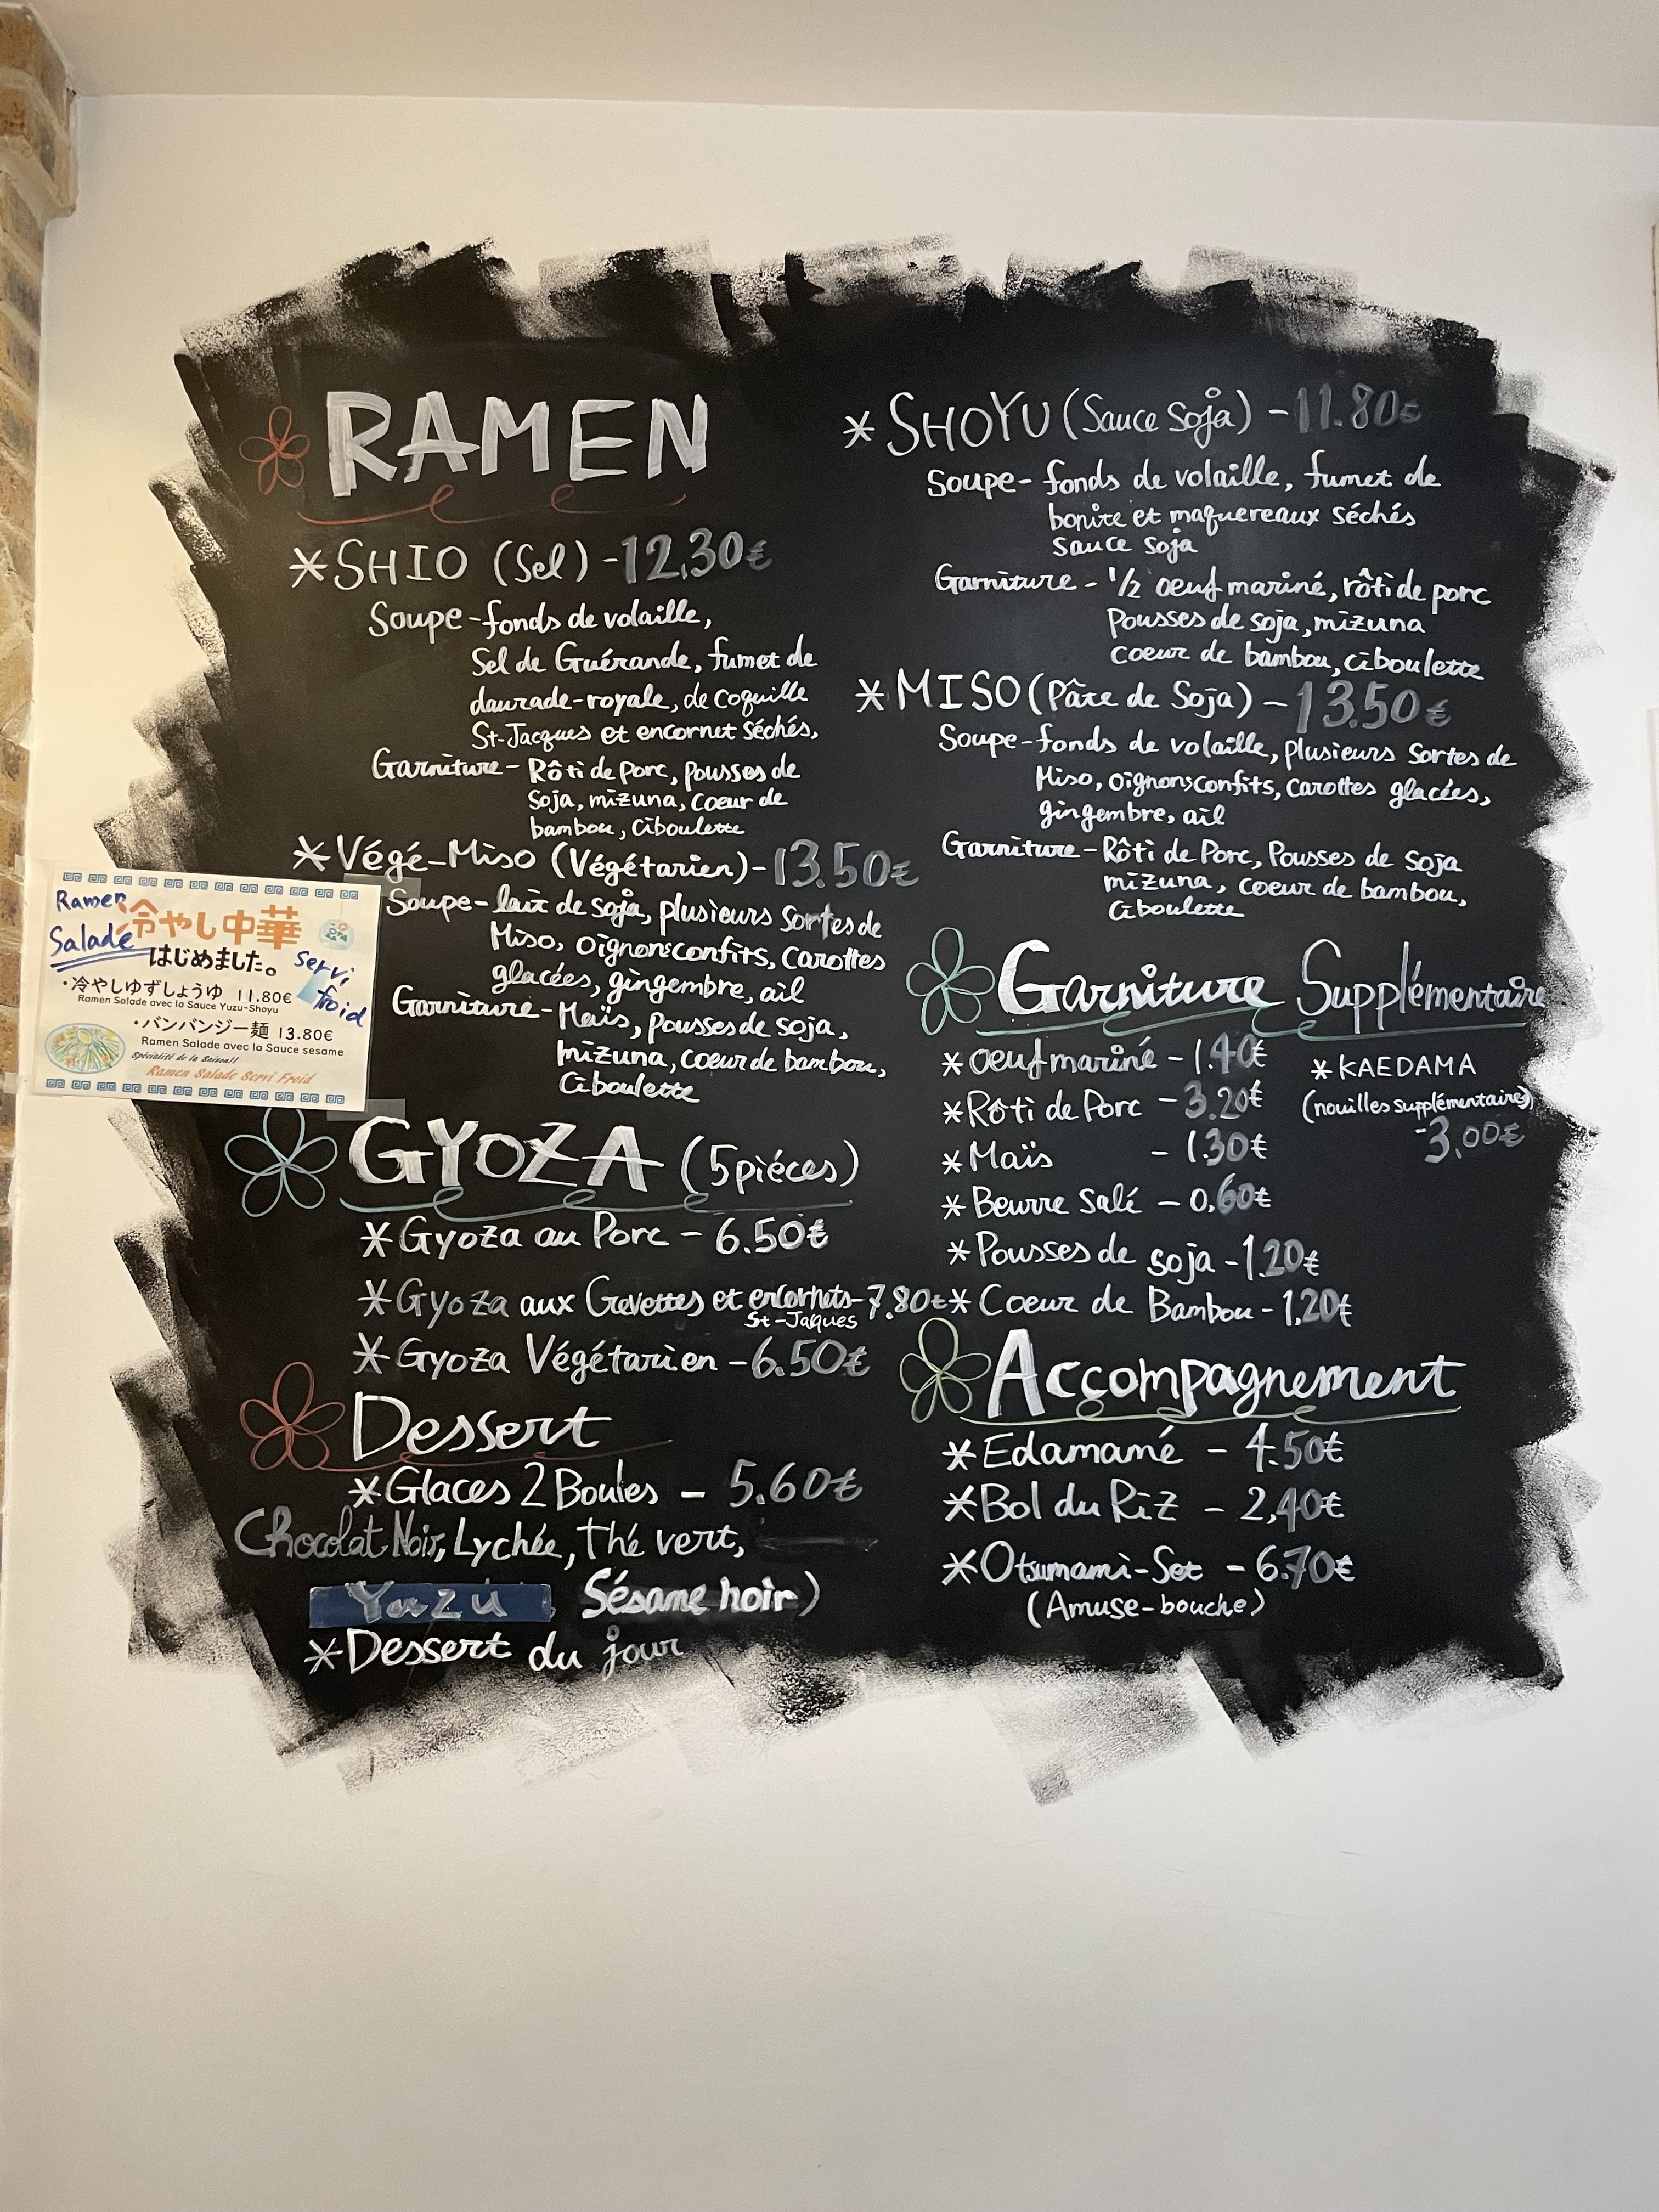 RAMEN
*SHIO (Sel) - 12,30€
Soupe - fonds de volaille,
Sel de Guérande, fumet de
daurade-royale, de coquille
St-Jacques et encornet séchés,
Garniture - Rôti de Porc, pousses de
Soja, mizuna, coeur de
bambou, ciboulette
*Végé-Miso (Végétarien) - 13.50€
Soupe - lait de soja, plusieurs sortes de
Miso, oignons confits, carottes
glacées, gingembre, ail
Garniture - Maïs, pousses de soja,
mizuna, coeur de bambou,
Ciboulette
GYOZA (5 piéces)
*Gyoza au Porc - 6.50€
*Gyoza aux Crevettes et encornets - 7.80€
St-Jaques
*Gyoza Végétarien - 6.50€
Dessert
*Glaces 2 Boules - 5.60€
Chocolat Noir, Lychée, thé vert,
Yuzu Sésame noir)
*Dessert du jour
*SHOYU (Sauce Soja) - 11.80€
Soupe - fonds de volaille, fumet de
bonite et maquereaux séchés
sauce soja
Garniture - 1/2 oeuf mariné, rôti de porc
Pousses de soja, mizuna
coeur de bambou, ciboulette
*MISO (Pâte de Soja) - 13.50€
Soupe - fonds de volaille, plusieurs sortes de
Miso, oignons confits, carottes glacées,
gingembre, ail
Garniture - Rôti de Porc, Pousses de soja
mizuna, coeur de bambou,
ciboulette
Garniture Supplémentaire
*oeuf mariné - 1.40€
*Rôti de Porc - 3.20€
*Maïs - 1.30€
*Beurre salé - 0,60€
*Pousses de soja - 1.20€
*Coeur de Bambou - 1,20€
*KAEDAMA
(nouilles supplémentaires)
-3,00€
Accompagnement
*Edamamé - 4.50€
*Bol du Riz - 2,40€
*Otsumami-Set - 6.70€
(Amuse-bouche)
Ramen
Salade
冷やし中華
はじめました。
servi
froid
・冷やしゆずしょうゆ 11.80€
Ramen Salade avec la Sauce Yuzu-Shoyu
・バンバンジー麺 13.80€
Ramen Salade avec la Sauce sesame
Spécialité de la Saison!!
Ramen Salade Servi Froid